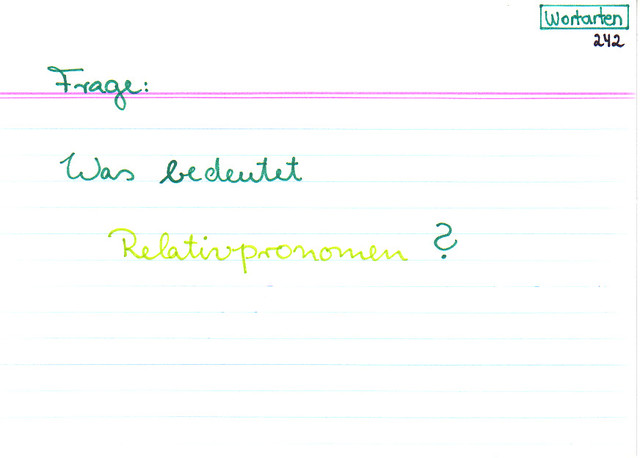 Wortarten
242
Frage:
Was bedeutet
Relativpronomen ?